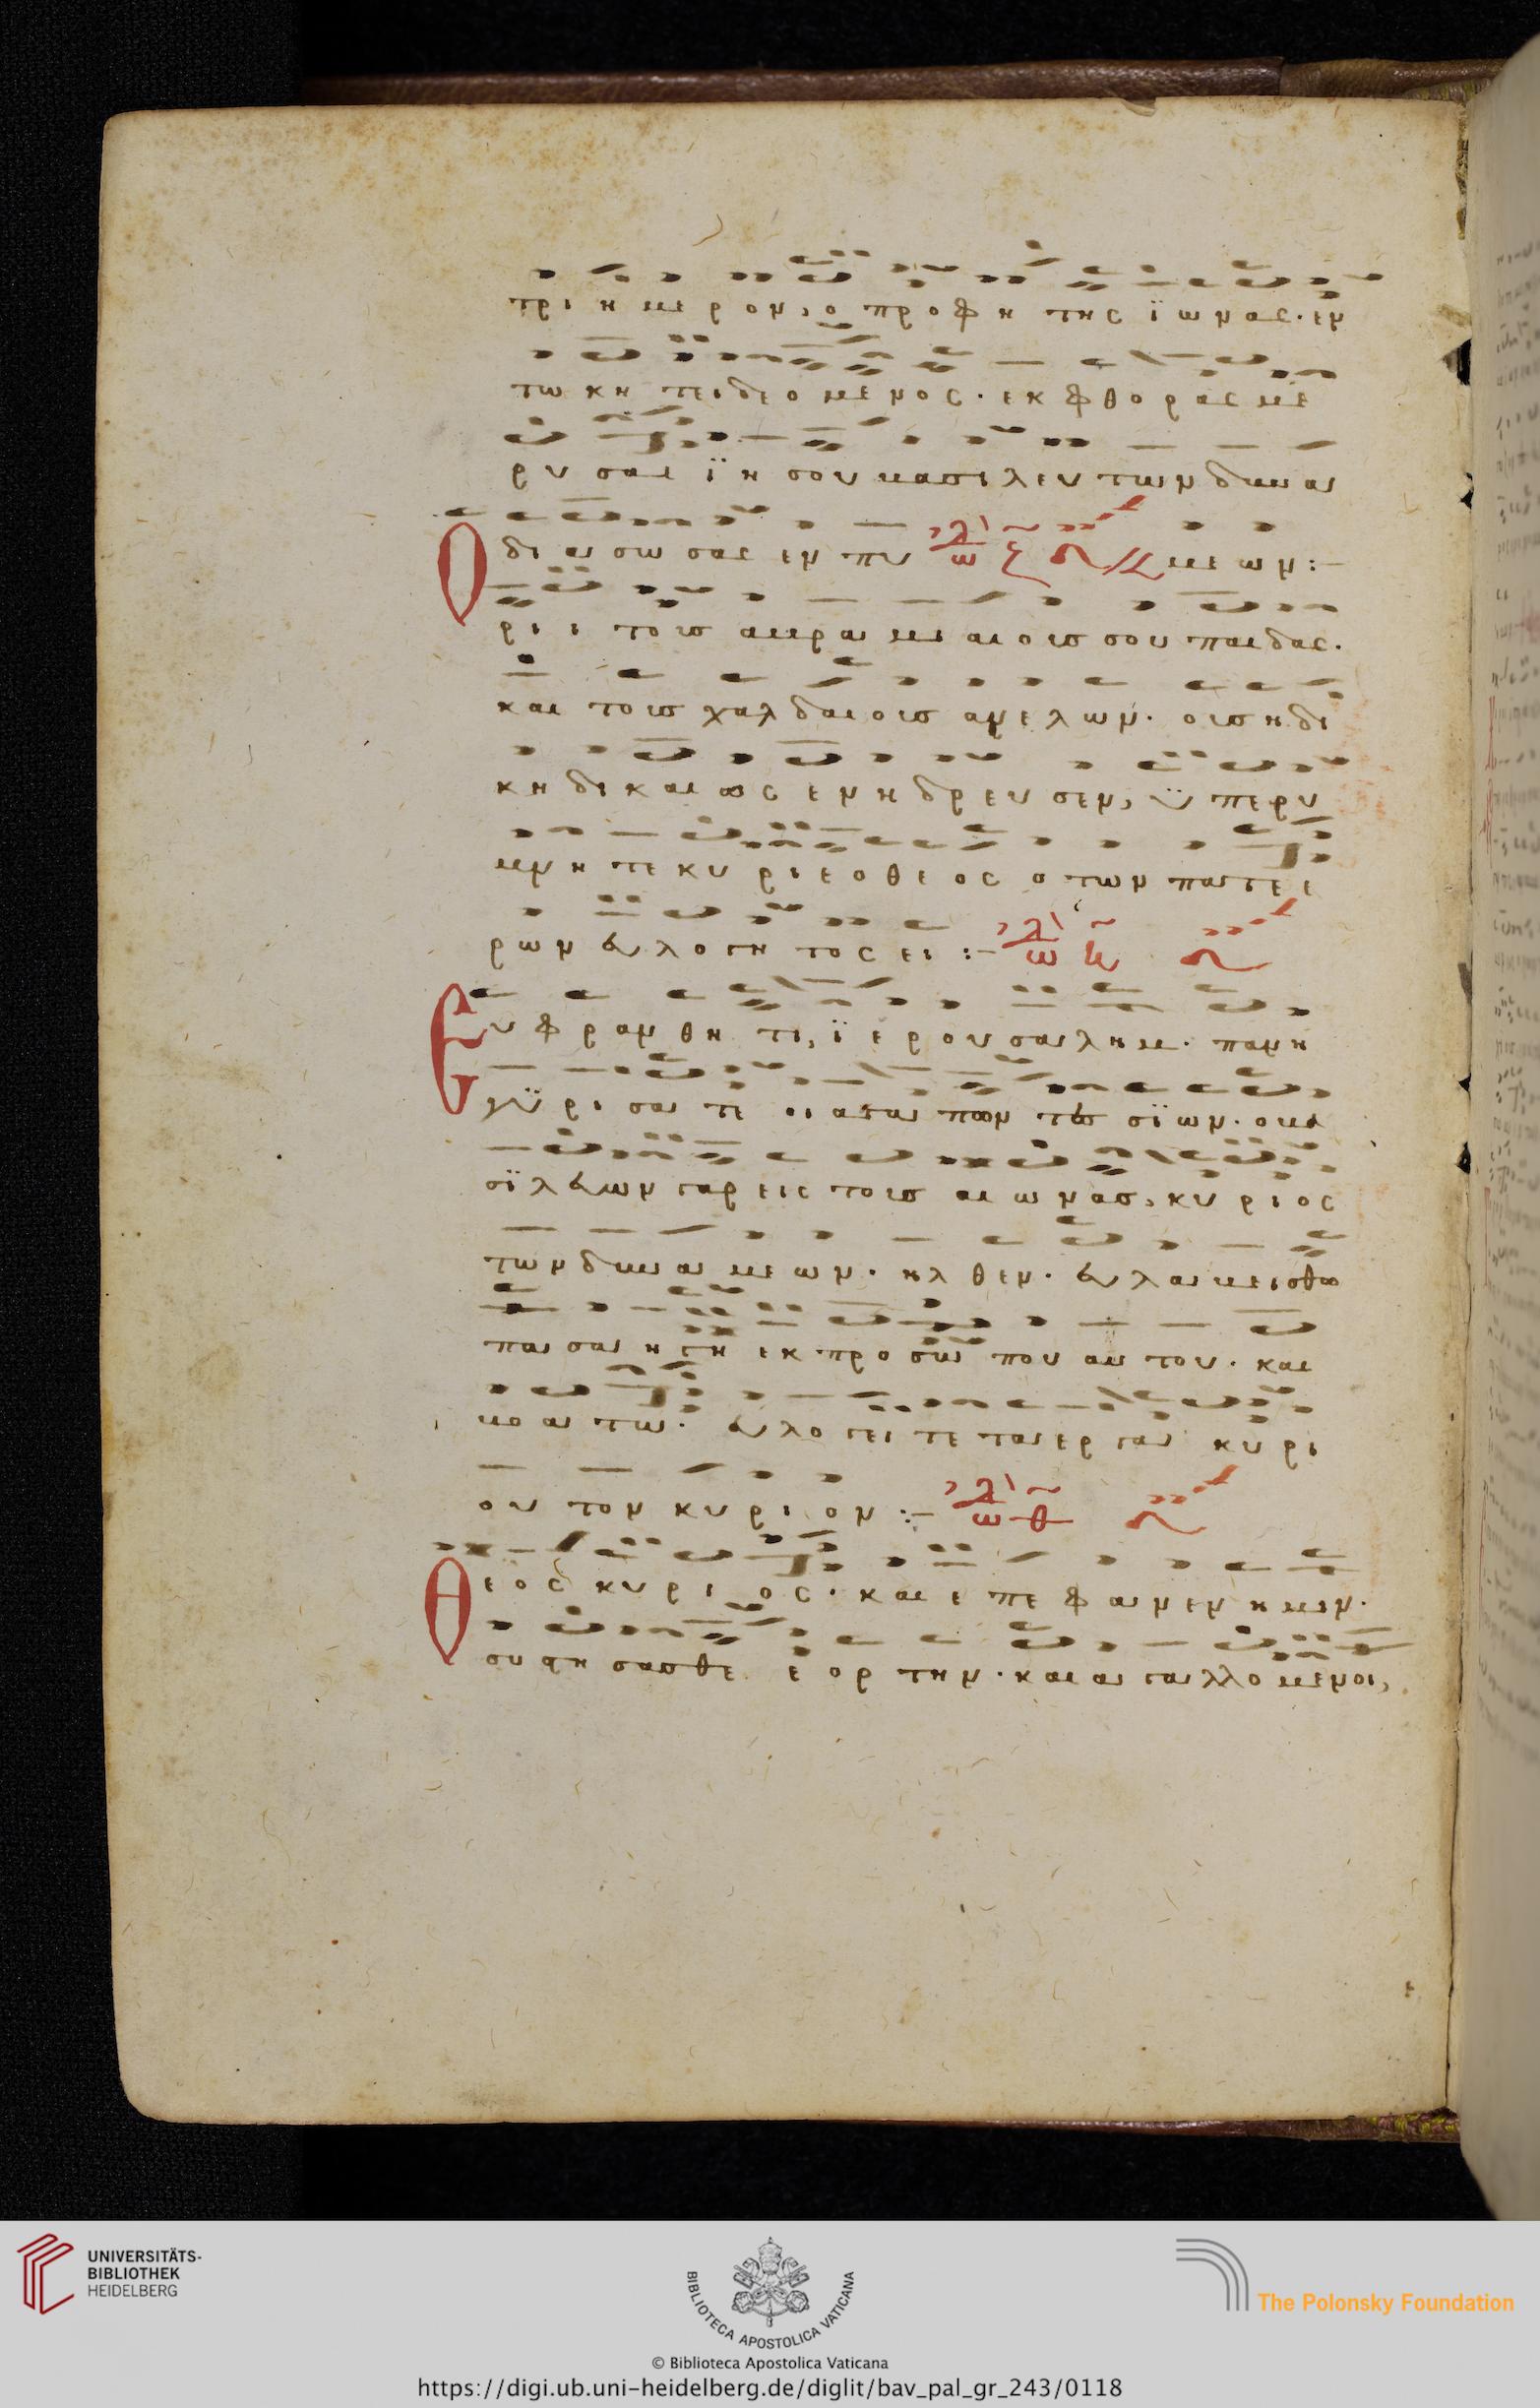 τριημερον, ο προφητης ϊωνας· εν
τω κητει δεομενος· εκ φθορας με
ρυσαι ϊησου βασιλευ των δυνα
Ο διασωσας εν πυ ωδ ζ μεων :–
ριι τοις αβραμιαιοις σου παιδας·
και τοις χαλδαιοις ανελων· οις η δι
κη δικαιως ενηδρευσεν, ϋπερυ
μνητε κυριε ο θεος ο των πατεε
ρων ευλογητος ει :– ωδ η
Ευφρανθητι, ϊερουσαλημ· πανη
γϋρισατε οι αγαπωντες σϊων· ο βα
σϊλευων γαρ εις τοις αιωνας, κυριος
των δυναμεων· ηλθεν· ευλαβεισθω
πασα η γη εκ προσωπου αυτου· και
βοατω· ευλογειτε τα εργα κυρι
ου τον κυριον :– ωδ θ
Θεος κυριος· και επεφανεν ημιν·
συστησασθε εορτην· και αγαλλομενοι,
UNIVERSITÄTS-
BIBLIOTHEK
HEIDELBERG
BIBLIOTECA APOSTOLICA VATICANA
The Polonsky Foundation
© Biblioteca Apostolica Vaticana
https://digi.ub.uni-heidelberg.de/diglit/bav_pal_gr_243/0118